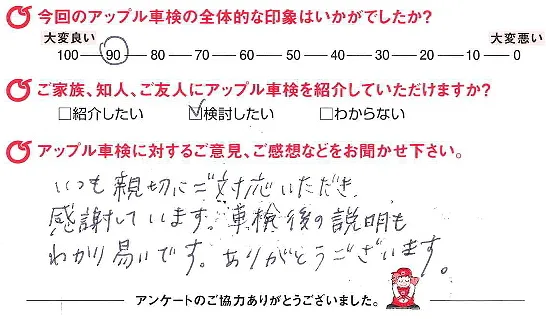 今回のアップル車検の全体的な印象はいかがでしたか?
大変良い 大変悪い
100 90 80 70 60 50 40 30 20 10 0
ご家族、知人、ご友人にアップル車検を紹介していただけますか?
□紹介したい ☑検討したい □わからない
アップル車検に対するご意見、ご感想などをお聞かせ下さい。
いつも親切にご対応いただき、
感謝しています。車検後の説明も
わかり易いです。ありがとうございます。
アンケートのご協力ありがとうございました。